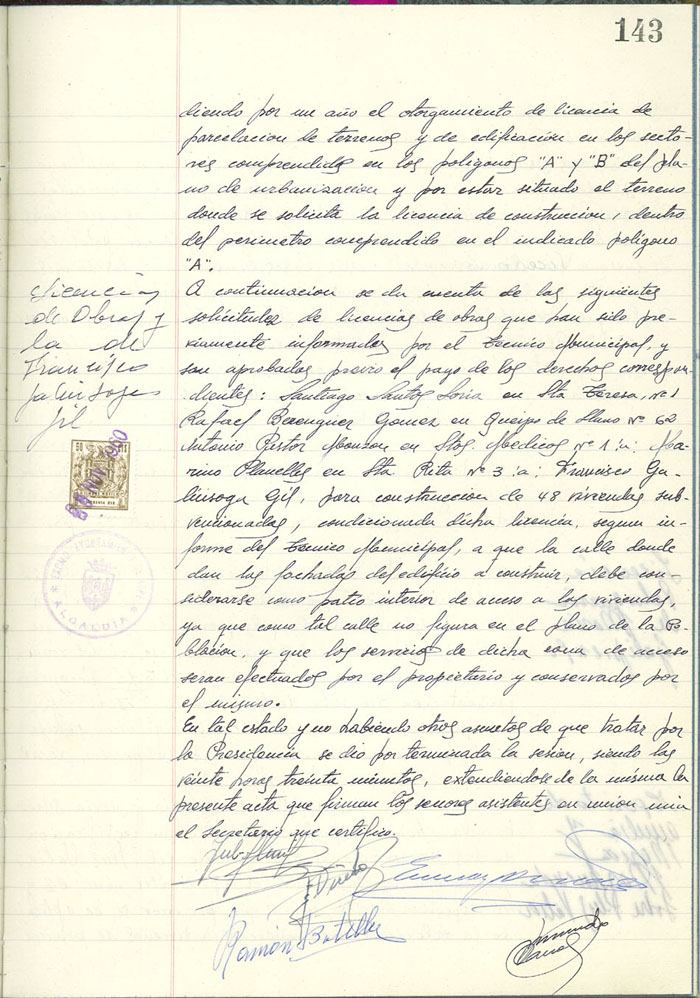 143
diendo por un año el otorgamiento de licencia de
parcelacion de terrenos y de edificación en los secto-
res comprendidos en los poligonos "A" y "B" del pla-
no de urbanizacion y por estar situado el terreno
donde se solicita la licencia de construccion, dentro
del perimetro comprendido en el indicado poligono
"A".
Licencias
de Obras y
la de
Francisco
Galinsoga
Gil
A continuacion se da cuenta de las siguientes
solicitudes de licencias de obras que han sido pre-
viamente informadas por el Tecnico Municipal, y
son aprobadas previo el pago de los derechos correspon-
dientes: Santiago Santos Soria en Sta Teresa, nº 1
Rafael Berenguer Gomez en Queipo de Llano nº 62
Antonio Pastor Monzon en Stos. Medicos nº 1 :a: Ma-
rino Planelles en Sta Rita nº 3 :a: Francisco Ga-
linsoga Gil, para construccion de 48 viviendas sub-
vencionadas, condicionada dicha licencia, segun in-
forme del Tecnico Municipal, a que la calle donde
dan las fachadas del edificio a construir, debe con-
siderarse como patio interior de acceso a las viviendas,
ya que como tal calle no figura en el plano de la Po-
blacion, y que los servicios de dicha zona de acceso
seran efectuados por el propietario y conservados por
el mismo.
En tal estado y no habiendo otros asuntos de que tratar por
la Presidencia se dio por terminada la sesion, siendo las
veinte horas treinta minutos, extendiendose de la misma la
presente acta que firman los señores asistentes en union mia
el Secretario que certifico.
ALCALDIA
Ramón Botella